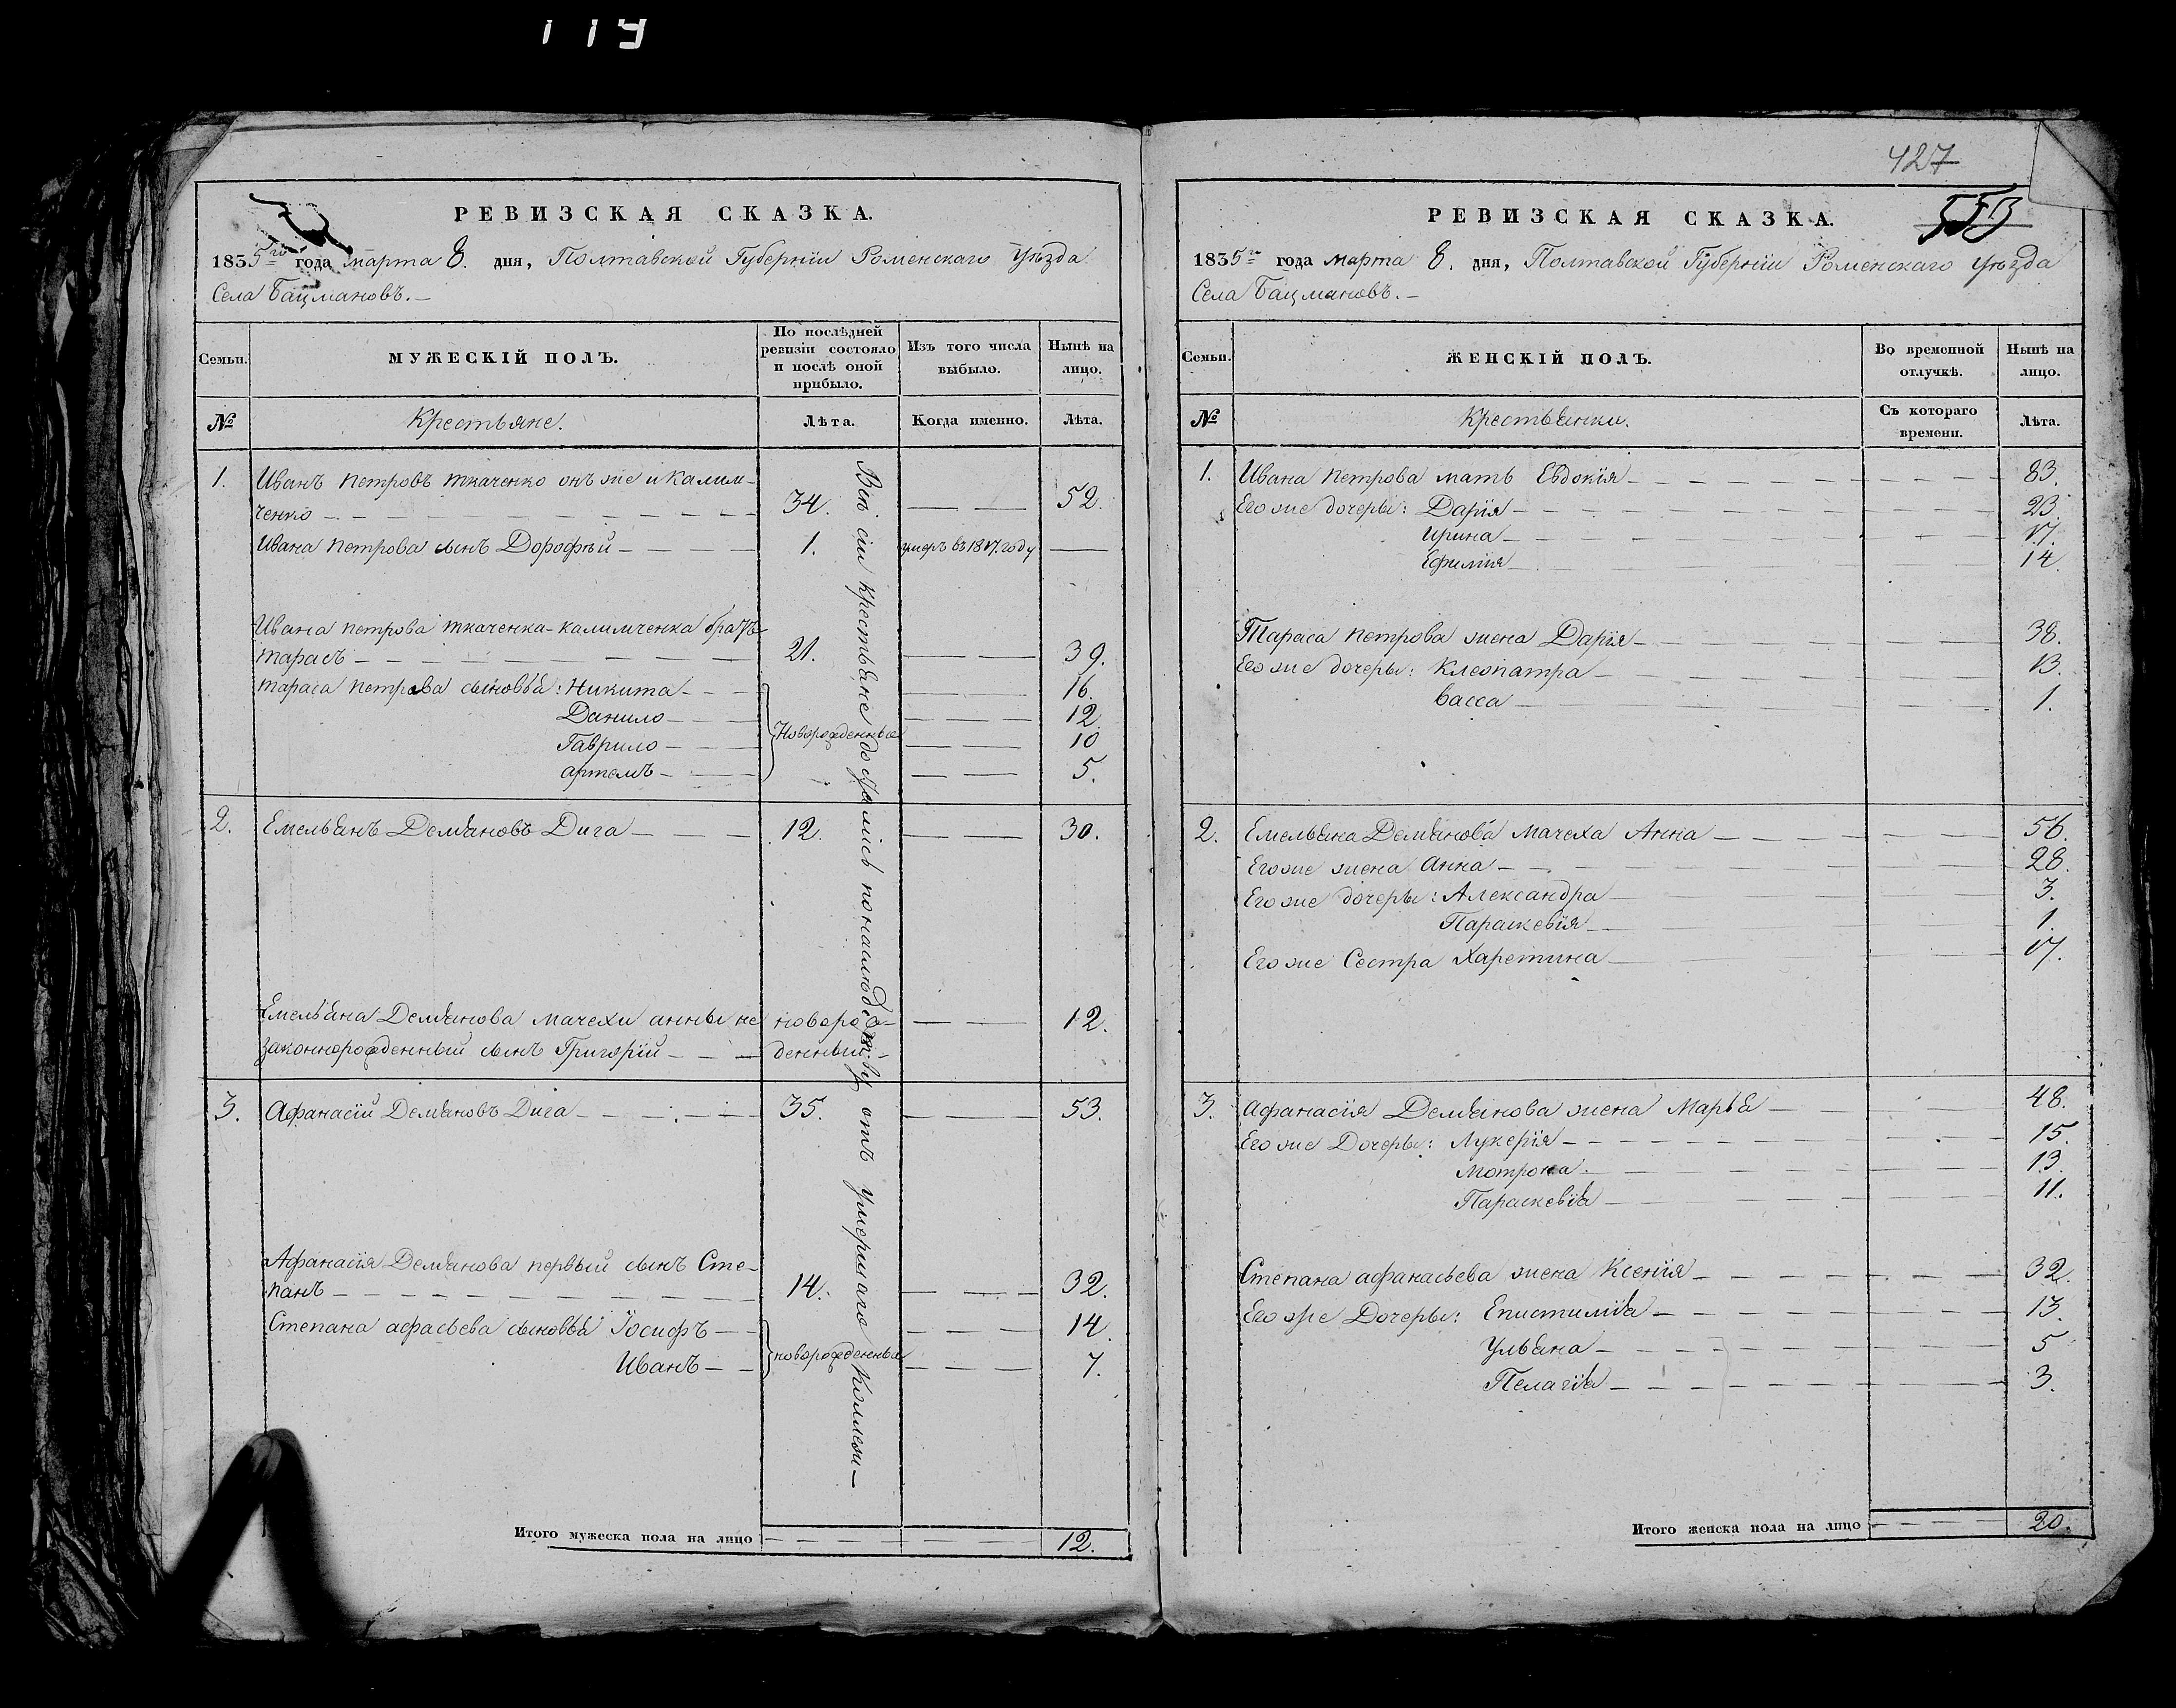 119
РЕВИЗСКАЯ СКАЗКА.
1835го года марта 8. дня, Полтавской Губернiи Роменскаго Уѣзда
Села Бацмановъ.
Семьи.
МУЖЕСКIЙ ПОЛЪ.
По послѣдней ревизiи состояло и послѣ оной прибыло.
Изъ того числа выбыло.
Нынѣ на лицо.
№
Крестьяне.
Лѣта.
Когда именно.
Лѣта.
1. Иванъ Петровъ Ткаченко онъ же и Калим-
ченко 34. 52.
Ивана Петрова сынъ Дорофѣй 1. умеръ въ 1817. году
Ивана Петрова Ткаченка-Калимченка братъ
Тарасъ 21. 39.
Тараса Петрова сыновья: Никита 16.
Данило 12.
Новорожденныя
Гаврило 10
Артемъ 5.
2. Емельянъ Демяновъ Дига 12. 30.
Емельяна Демянова мачехи Анны не новорож- 12.
законнорожденный сынъ Григорiй денный
3. Афанасiй Демяновъ Дига 35. 53.
Афанасiя Демянова первый сынъ Сте-
панъ 14. 32.
Степана афасьева сыновья Iосифъ 14.
новорожденныя
Иванъ 7.
Всѣ сiи крестьяне досталисъ по наслюдству отъ умершаго
Итого мужеска пола на лицо 12.
427
553
РЕВИЗСКАЯ СКАЗКА.
1835го года марта 8. дня, Полтавской Губернiи Роменскаго Уѣзда
Села Бацмановъ.
Семьи.
ЖЕНСКIЙ ПОЛЪ.
Во временной отлучкѣ.
Нынѣ на лицо.
№
Крестьянки.
Съ котораго времени.
Лѣта.
1. Ивана Петрова мать Евдокiя 83.
Его же дочеры: Дарiя 23.
Ирина 17.
Ефимiя 14.
Тараса Петрова жена Дарiя 38.
Его же дочеры: Клеопатра 13.
Васса 1.
2. Емельяна Демянова мачеха Анна 56.
Его же жена Анна 28.
Его же дочеры: Александра 3.
Параскевiя 1.
Его же Сестра Харетина 17.
3. Афанасiя Демянова жена Марья 48.
Его же Дочеры: Лукерiя 15.
Мотрона 13.
Параскевiя 11.
Степана афанасьева жена Ксенiя 32.
Его же Дочеры: Епистимiя 13.
Ульяна 5
Пелагiя 3.
Итого женска пола на лицо 20.